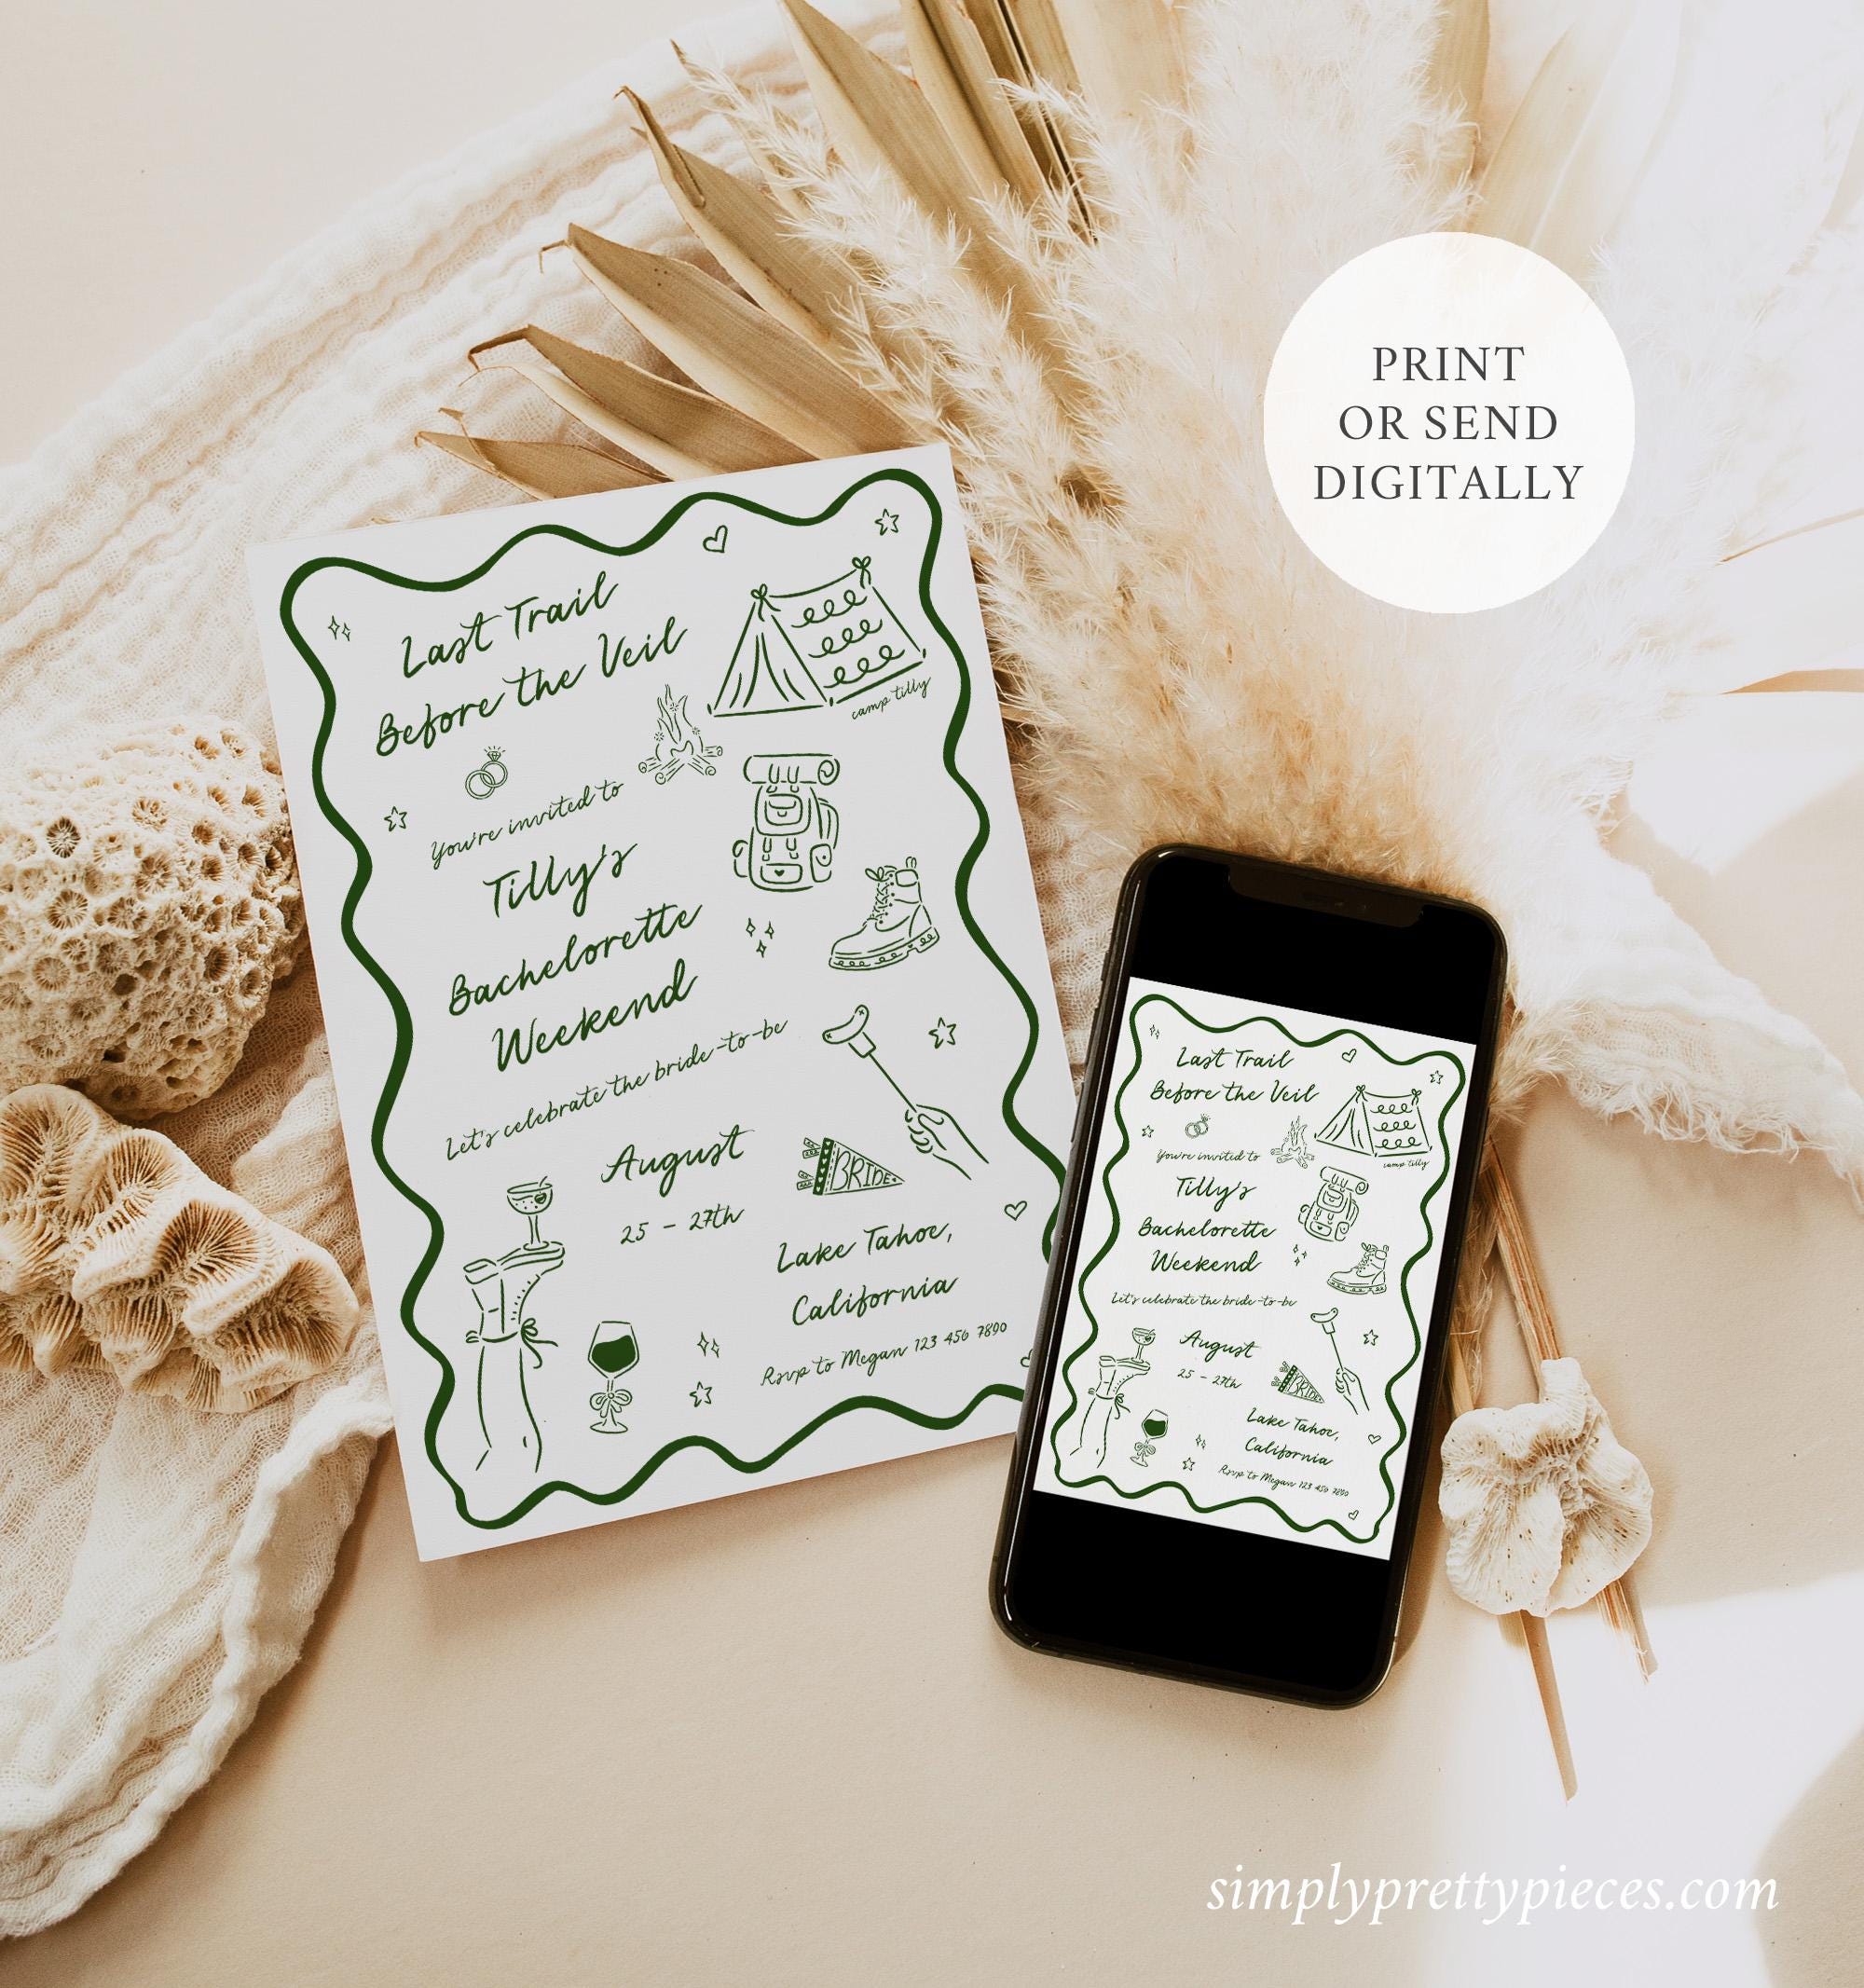 PRINT
OR SEND
DIGITALLY
Last Trail
Before the Veil
camp tilly
You're invited to
Tilly's
Bachelorette
Weekend
Let's celebrate the bride-to-be
August
25 - 27th
BRIDE
Lake Tahoe,
California
Rsvp to Megan 123 456 7890
Last Trail
Before the Veil
camp tilly
You're invited to
Tilly's
Bachelorette
Weekend
Let's celebrate the bride-to-be
August
25 - 27th
BRIDE
Lake Tahoe,
California
Rsvp to Megan 123 456 7890
simplyprettypieces.com